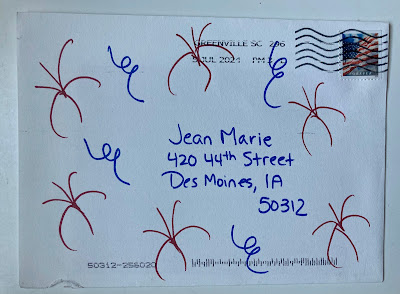 GREENVILLE SC 296
5 JUL 2024 PM
Jean Marie
420 44th Street
Des Moines, IA
50312
50312-256020